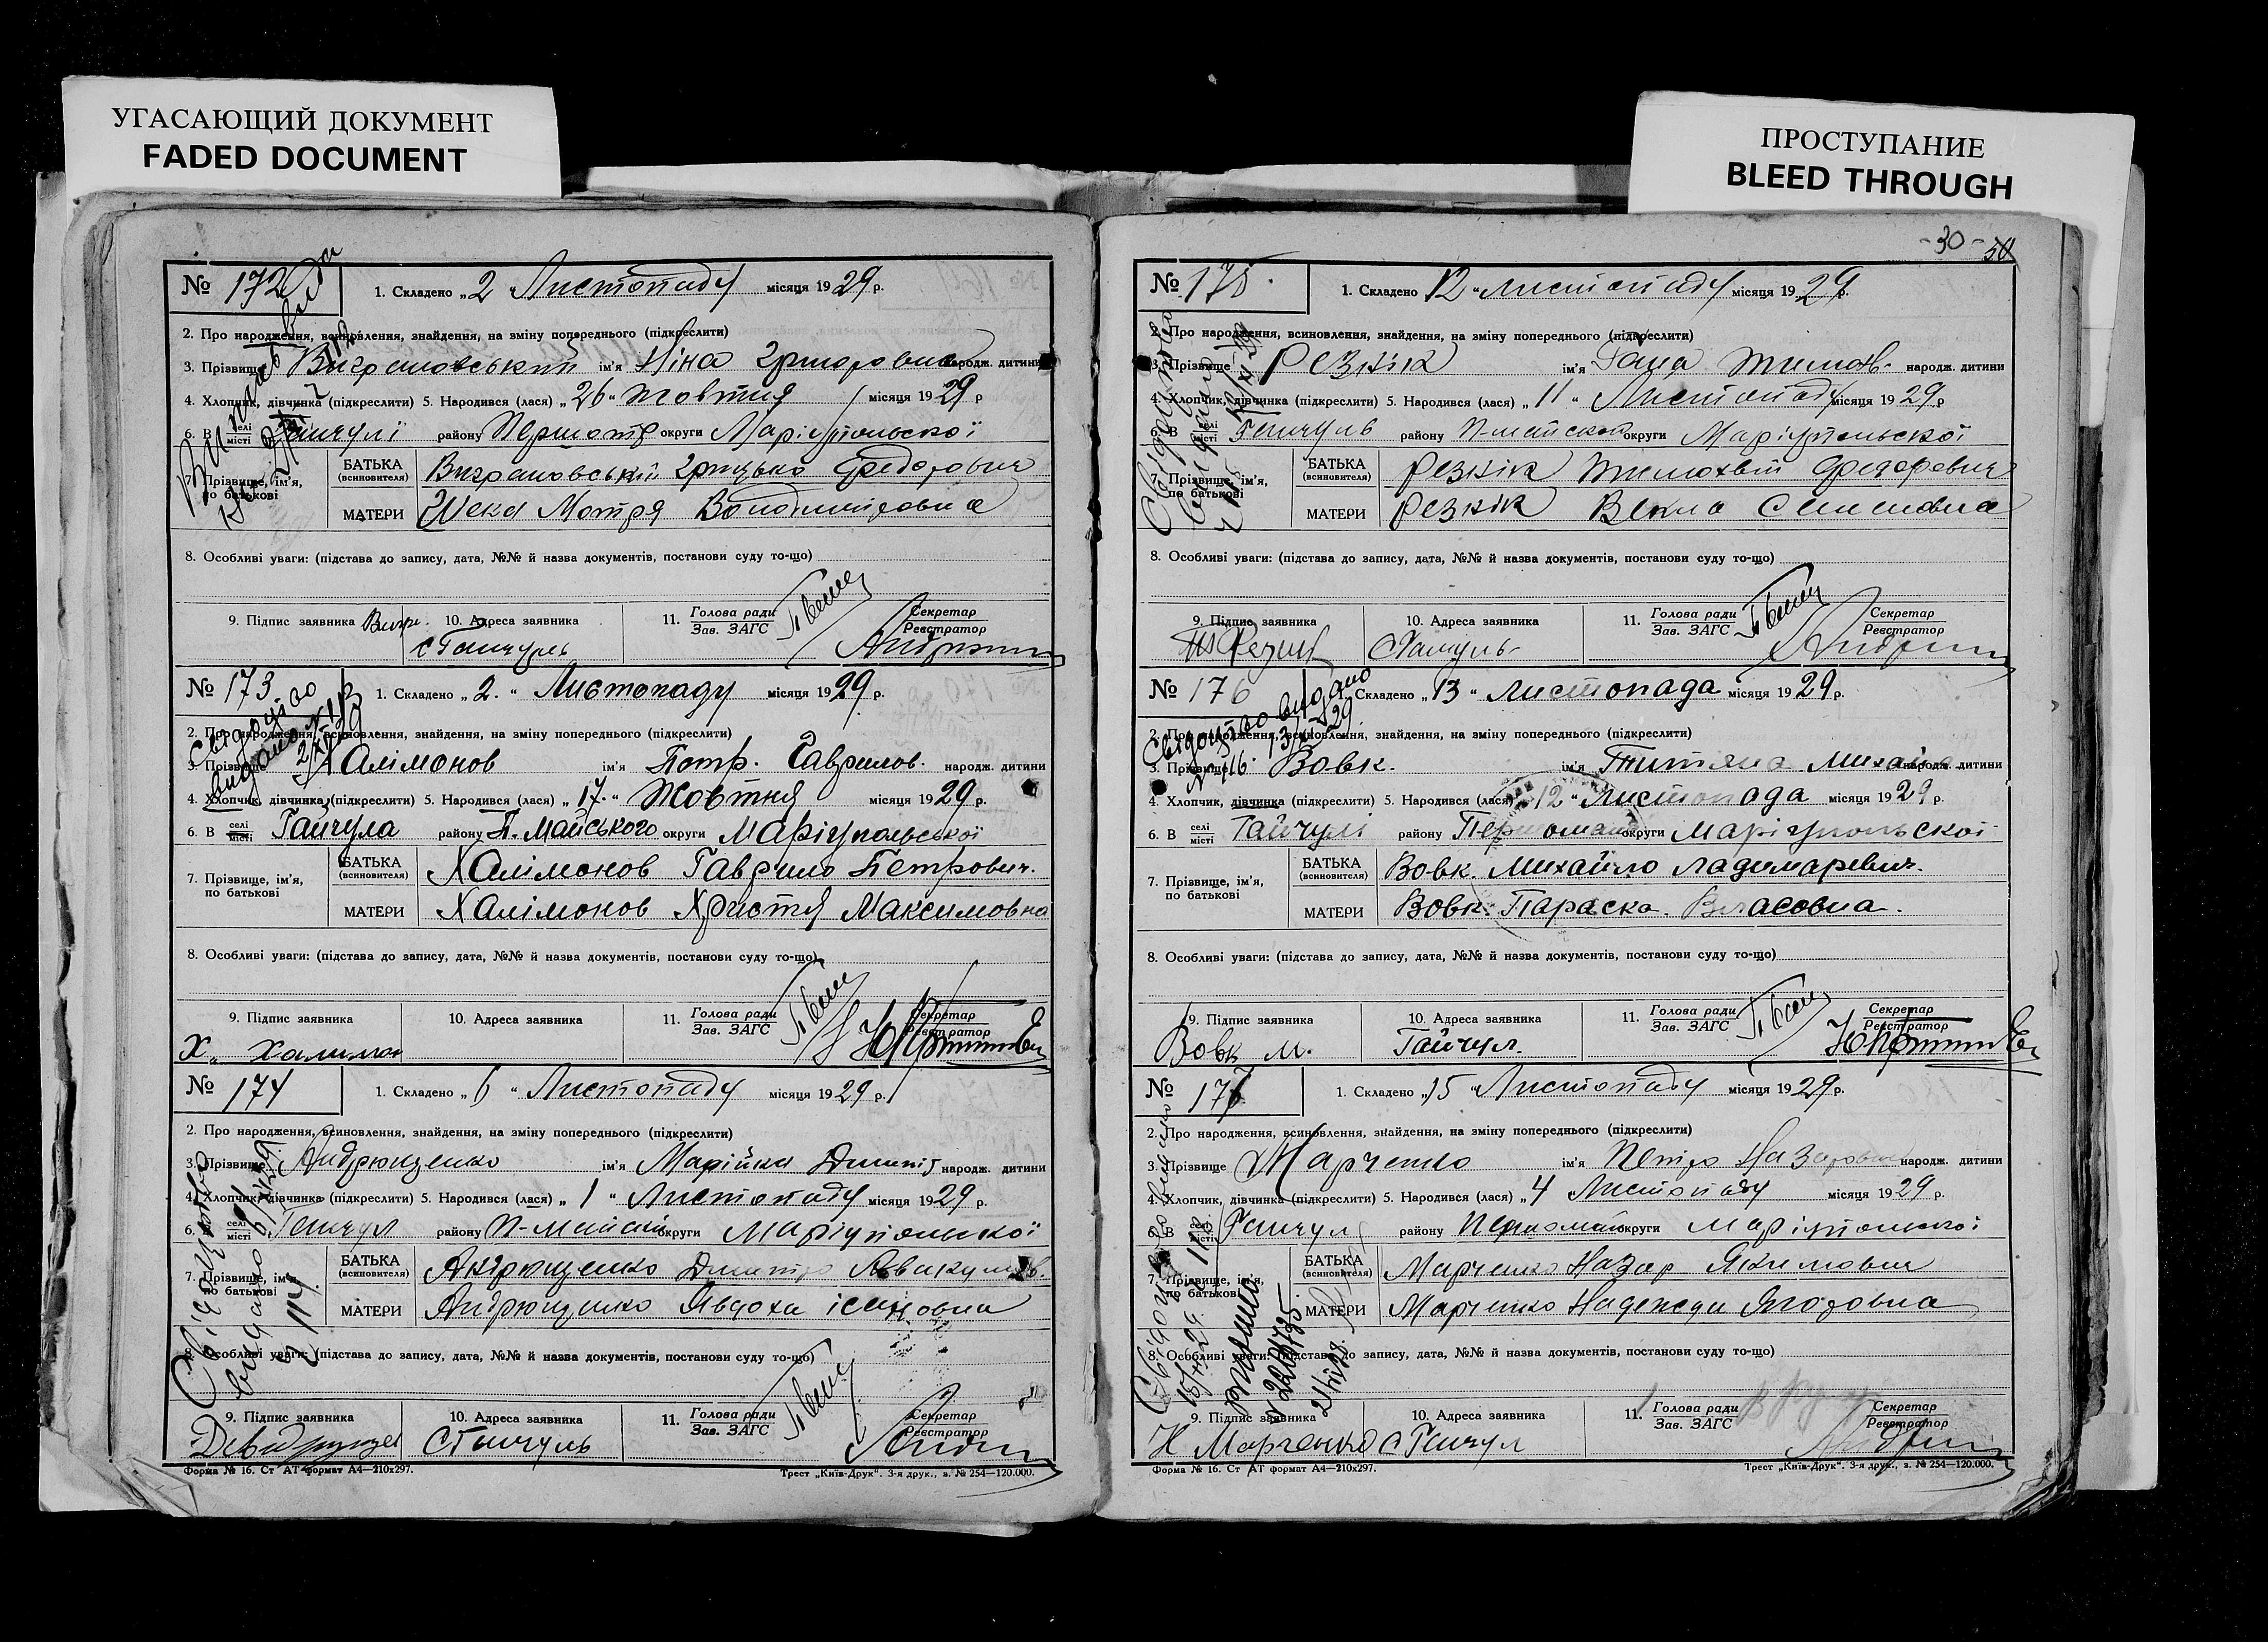 УГАСАЮЩИЙ ДОКУМЕНТ
FADED DOCUMENT
ПРОСТУПАНИЕ
BLEED THROUGH
№ 172
1. Складено „2 Листопаду місяця 1929 р.
2. Про народження, всиновлення, знайдення, на зміну попереднього (підкреслити)
3. Прізвище Виграновський ім'я Ніна народж. дитини
4. Хлопчик, дівчинка (підкреслити) 5. Народився (лася) „26" Жовтня місяця 1929 р
6. В селі місті району округи Маріупольскої
7. Прізвище, ім'я, по батькові
БАТЬКА (всиновителя) Виграновський Грицько Федорович
МАТЕРИ Мотря Володимировна
8. Особливі уваги: (підстава до запису, дата, №№ й назва документів, постанови суду то-що)
9. Підпис заявника 10. Адреса заявника с Гайчуль 11. Голова ради Зав. ЗАГС Секретар Реєстратор
№ 173
1. Складено „2." Листопаду місяця 1929 р.
Свідоцтво видано
2. Про народження, всиновлення, знайдення, на зміну попереднього (підкреслити)
3. Прізвище Халімонов ім'я Петр. Гаврилов. народж. дитини
4. Хлопчик, дівчинка (підкреслити) 5. Народився (лася) „17." Жовтня місяця 1929 р.
6. В селі місті Гайчула району П. Майського округи Маріупольської
7. Прізвище, ім'я, по батькові
БАТЬКА (всиновителя) Халімонов Гаврило Петрович.
МАТЕРИ Халімонов Христя Максимовна
8. Особливі уваги: (підстава до запису, дата, №№ й назва документів, постанови суду то-що)
9. Підпис заявника 10. Адреса заявника 11. Голова ради Зав. ЗАГС Секретар Реєстратор
№ 174
1. Складено „6" Листопаду місяця 1929 р.
Свідоцтво видано
2. Про народження, всиновлення, знайдення, на зміну попереднього (підкреслити)
3. Прізвище Андрющенко ім'я Марійка народж. дитини
4. Хлопчик, дівчинка (підкреслити) 5. Народився (лася) „1" Листопаду місяця 1929 р.
6. В селі місті Гайчул району округи Маріупольскої
7. Прізвище, ім'я, по батькові
БАТЬКА (всиновителя) Андрющенко Дмитро
МАТЕРИ Андрющенко Явдоха
8. Особливі уваги: (підстава до запису, дата, №№ й назва документів, постанови суду то-що)
9. Підпис заявника 10. Адреса заявника с Гайчуль 11. Голова ради Зав. ЗАГС Секретар Реєстратор
Форма № 16. Ст АТ формат А4—210х297. Трест „Київ-Друк". 3-я друк., з. № 254—120.000.
-30-
№ 175
1. Складено 12 "Листопаду місяця 1929 р.
Свідоцтво видано
2. Про народження, всиновлення, знайдення, на зміну попереднього (підкреслити)
3. Прізвище Резнік ім'я народж. дитини
4. Хлопчик, дівчинка (підкреслити) 5. Народився (лася) „11" Листопаду місяця 1929 р
6. В селі місті Гайчуль району округи Маріупольскої
7. Прізвище, ім'я, по батькові
БАТЬКА (всиновителя) Резнік Тимохвій Федорович
МАТЕРИ Резнік Векла Семеновна
8. Особливі уваги: (підстава до запису, дата, №№ й назва документів, постанови суду то-що)
9. Підпис заявника 10. Адреса заявника 11. Голова ради Зав. ЗАГС Секретар Реєстратор
№ 176
1. Складено „13" Листопада місяця 1929 р.
Свідоцтво видано
2. Про народження, всиновлення, знайдення, на зміну попереднього (підкреслити)
3. Прізвище Вовк. ім'я народж. дитини
4. Хлопчик, дівчинка (підкреслити) 5. Народився (лася) 12" Листопада місяця 1929 р.
6. В селі місті Гайчулі району округи Маріупольської
7. Прізвище, ім'я, по батькові
БАТЬКА (всиновителя) Вовк. Михайло Ладимаревич.
МАТЕРИ Вовк. Параска. Власовна.
8. Особливі уваги: (підстава до запису, дата, №№ й назва документів, постанови суду то-що)
9. Підпис заявника Вовк М. 10. Адреса заявника Гайчул. 11. Голова ради Зав. ЗАГС Секретар Реєстратор
№ 177
1. Складено „15 "Листопаду місяця 1929 р.
2. Про народження, всиновлення, знайдення, на зміну попереднього (підкреслити)
3. Прізвище Марченко ім'я Петро народж. дитини
4. Хлопчик, дівчинка (підкреслити) 5. Народився (лася) „4 Листопаду місяця 1929 р.
6. В селі місті Гайчул району округи Маріупольської
7. Прізвище, ім'я, по батькові
БАТЬКА (всиновителя) Марченко Назар Якимович
МАТЕРИ Марченко Надежда Ягоровна
8. Особливі уваги: (підстава до запису, дата, №№ й назва документів, постанови суду то-що)
9. Підпис заявника Н Марченко 10. Адреса заявника с Гайчул 11. Голова ради Зав. ЗАГС Секретар Реєстратор
Форма № 16. Ст АТ формат А4—210х297. Трест „Київ-Друк". 3-я друк., з. № 254—120.000.